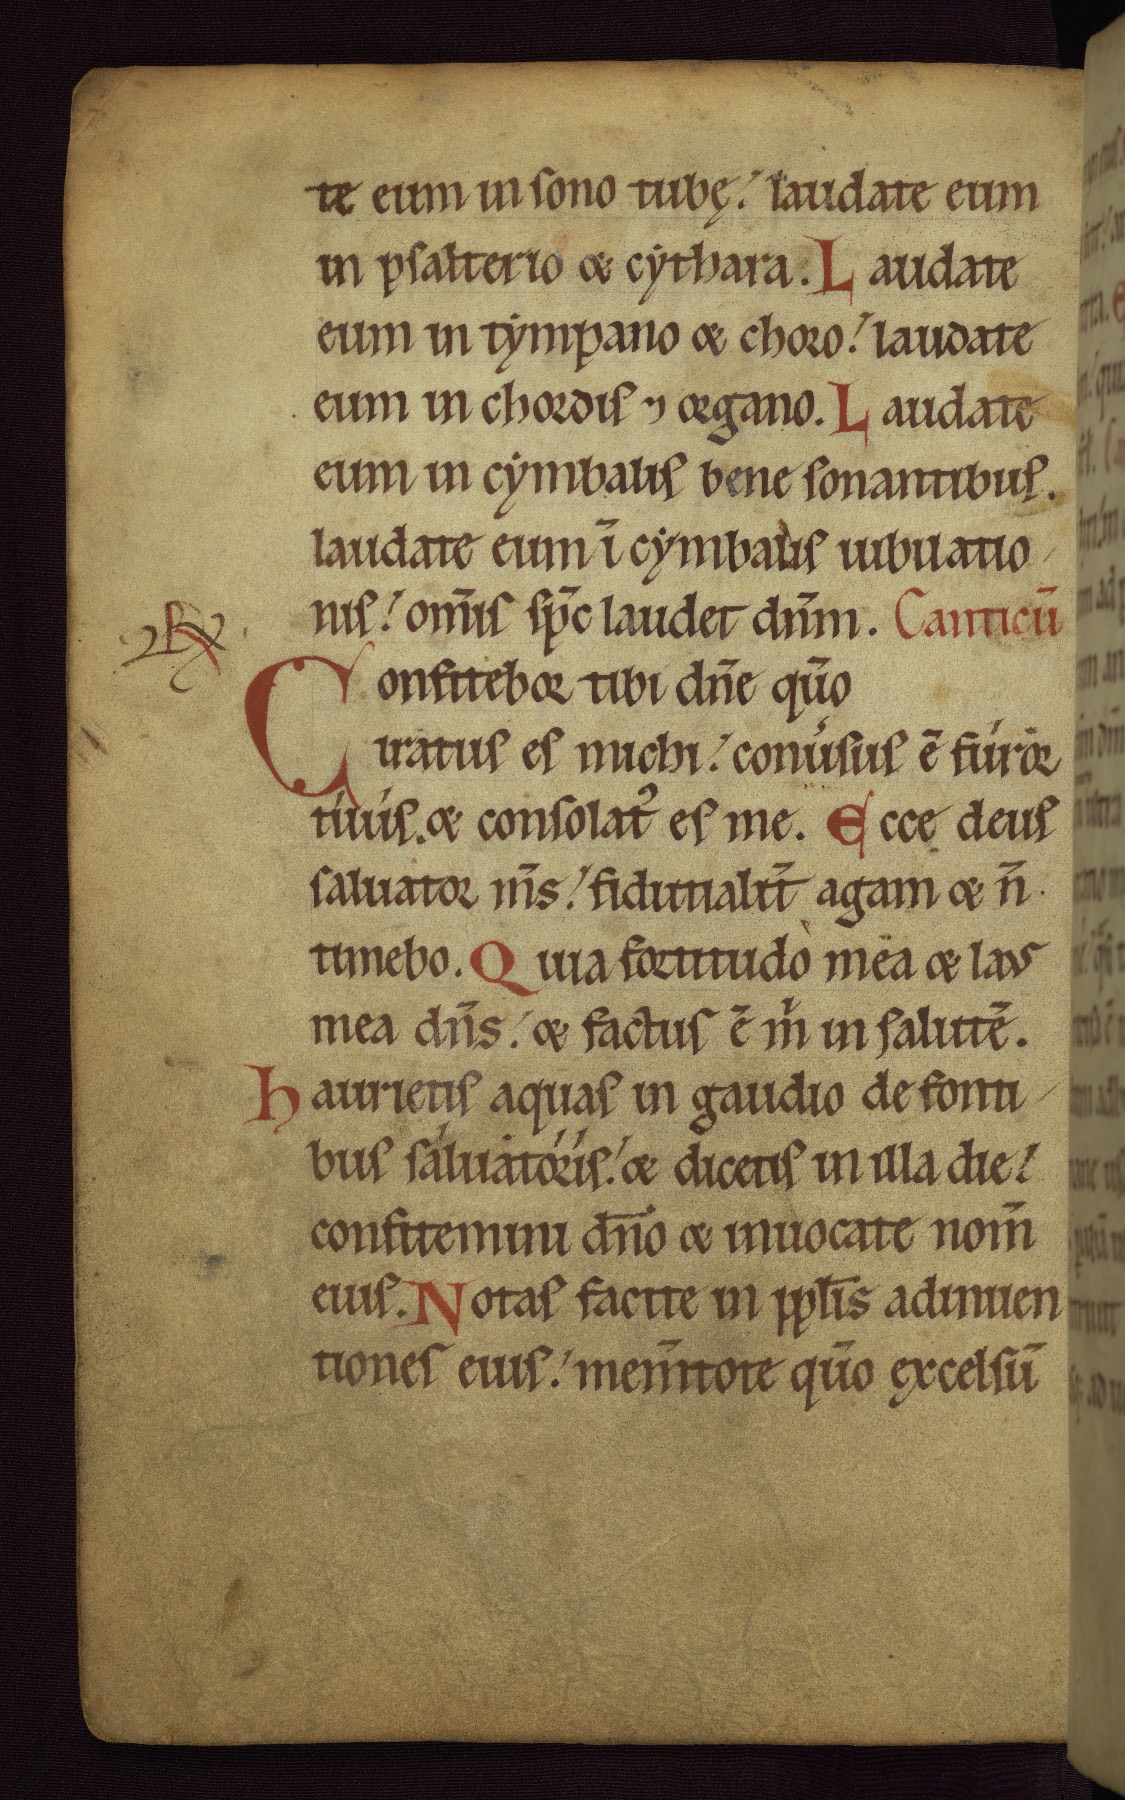 te eum in sono tubę. laudate eum
in psalterio & cẏthara. Laudate
eum in tẏmpano & choro. laudate
eum in chordis ⁊ organo. Laudate
eum in cẏmbalis bene sonantibus.
laudate eum ī cẏmbalis iubilatio
nis. om̄is sp̄c laudet dn̄m. Canticū
Confitebor tibi dn̄e qm̄o
iratus es michi. conu̾sus ē furor
tuus. & consolat᷒ es me. Ecce deus
saluator m̄s. fidutialit̄ agam & n̄
timebo. Quia fortitudo mea & laus
mea dn̄s. & factus ē m̍ in salutē.
Haurietis aquas in gaudio de fonti
bus saluatoris. & dicetis in illa die.
confitemini dn̄o & inuocate nom̄
eius. Notas facite in ppl̄is adinuen
tiones eius. mem̄tote qm̄o excelsū